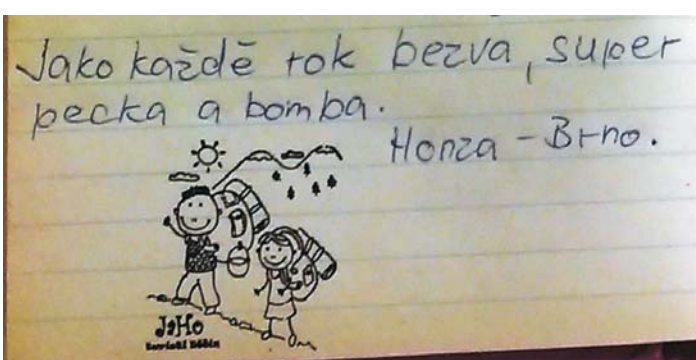 Jako každē rok bezva, super
pecka a bomba.
Honza - Brno.
JaHo